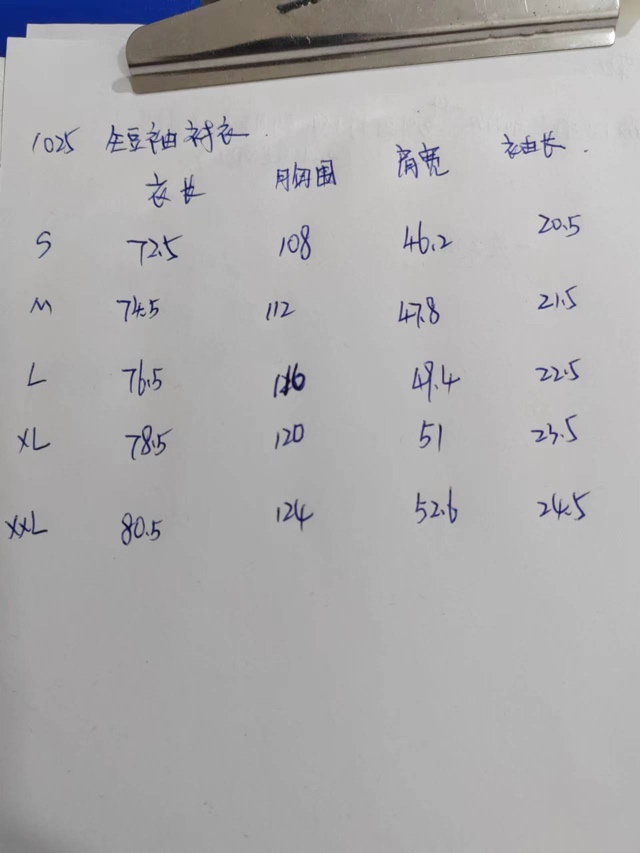 1025 短袖衬衣
衣长 胸围 肩宽 袖长
S 72.5 108 46.2 20.5
M 74.5 112 47.8 21.5
L 76.5 116 49.4 22.5
XL 78.5 120 51 23.5
XXL 80.5 124 52.6 24.5